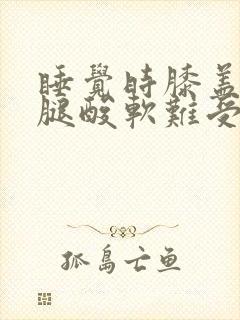 睡覺時膝蓋
腿酸軟難受
孤島亡鱼